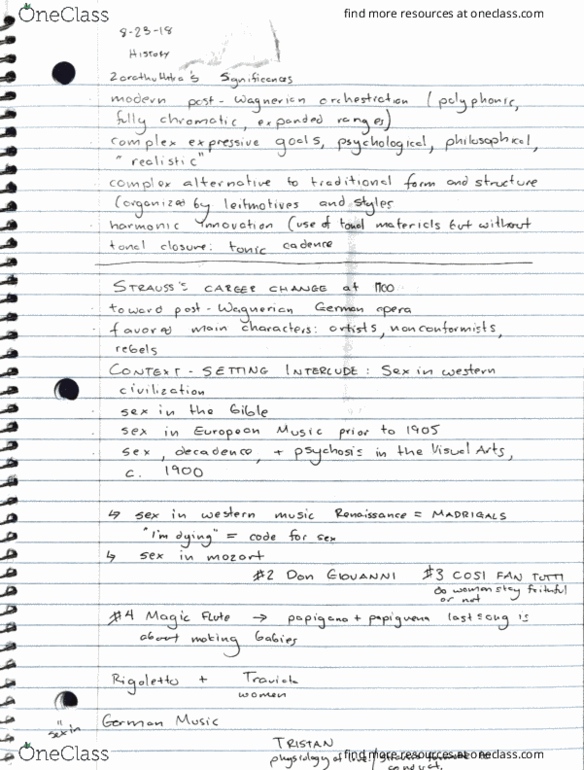 OneClass
find more resources at oneclass.com
8-23-18
History
Zarathustra's Significances
modern post-Wagnerian orchestration (polyphonic,
fully chromatic, expanded ranges)
complex expressive goals, psychological, philosophical,
"realistic"
complex alternative to traditional form and structure
(organized by leitmotives and styles
harmonic innovation (use of tonal materials but without
tonal closure: tonic cadence
STRAUSS'S CAREER CHANGE at 1900
toward post-Wagnerian German opera
favored main characters: artists, nonconformists,
rebels
CONTEXT-SETTING INTERLUDE: Sex in western
civilization
sex in the bible
sex in European Music prior to 1905
sex, decadence, + psychosis in the Visual Arts,
c. 1900
↳ sex in western music Renaissance = MADRIGALS
"i'm dying" = code for sex
↳ sex in mozart
#2 Don GIOVANNI #3 COSI FAN TUTTI
do women stay faithful
or not
#4 Magic Flute → papigano + papiguena last song is
about making babies
Rigoletto + Traviata
women
"sex in German Music
TRISTAN
physiology of
conduct.
OneClass
find more resources at oneclass.com